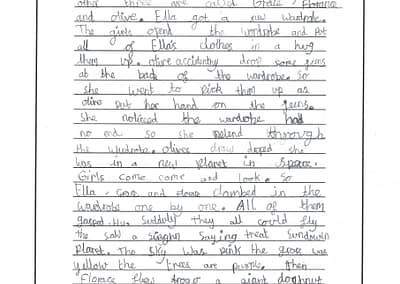 other three are called Grace, Florance
and olive. Ella got a new wardrobe.
The girls opend the wordrobe and Pot
all of Ella's clothes in a hug
them up. olive accidenty drop some jeans
at the back of the wardrobe. So
she went to Pick them up as
olive Put her hand on the jeans.
She noticed the wardrobe had
no end so she through
the whardrobe. olives draw droped she
was in a new Planet in space.
Girls come come and look. So
Ella, Grace and clambed in the
wardrobe one by one. All of them
gasped. Suddnly they all could fly
the saw a saying treat sundrwin
Planet. The Sky was Pink the grass was
yellow the trees are people. then
Florace flies a giant doghnut